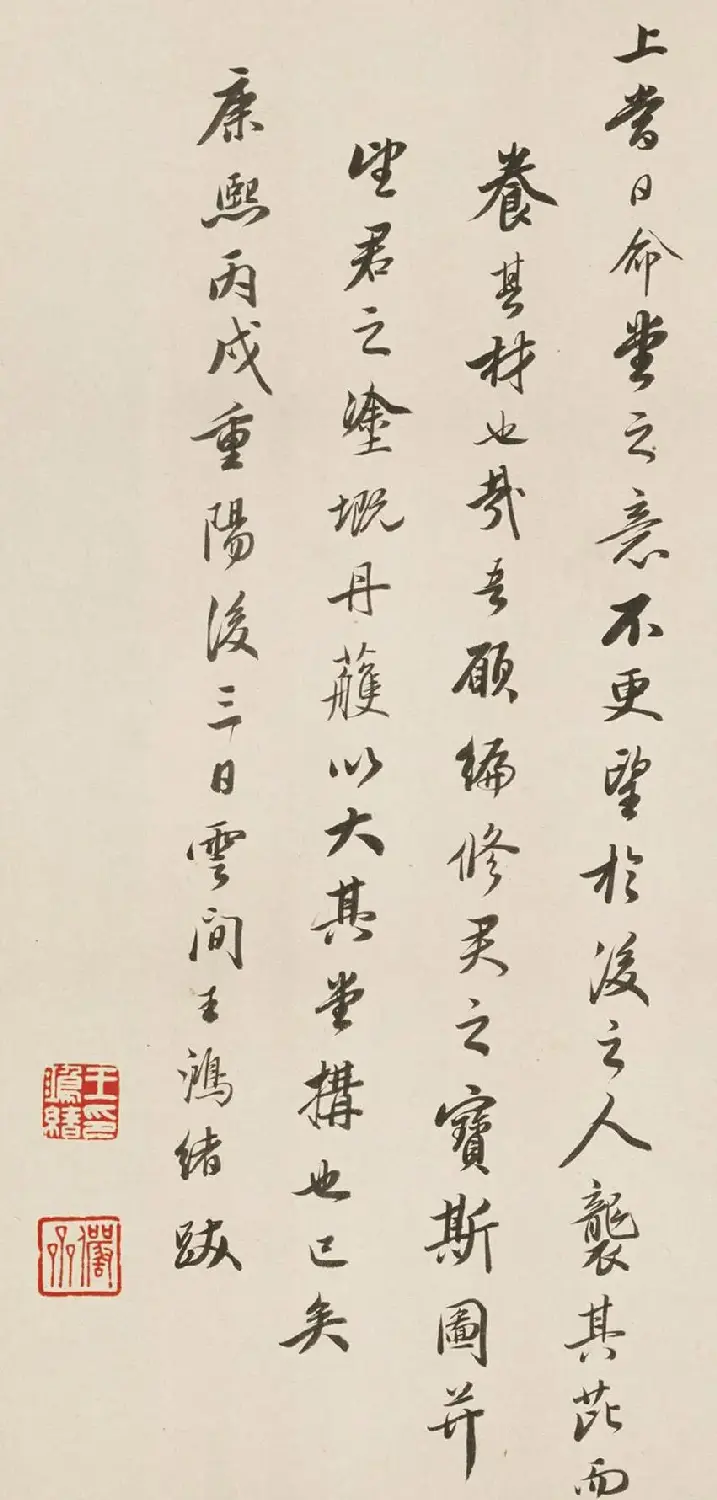 上當日命堂之意不更望於後之人襲其芘而
養其材也哉吾願編修君之寶斯圖并
望君之塗塈丹雘以大其堂構也已矣
康熙丙戌重陽後三日雲間王鴻緒跋
王鴻緒印
儼齋